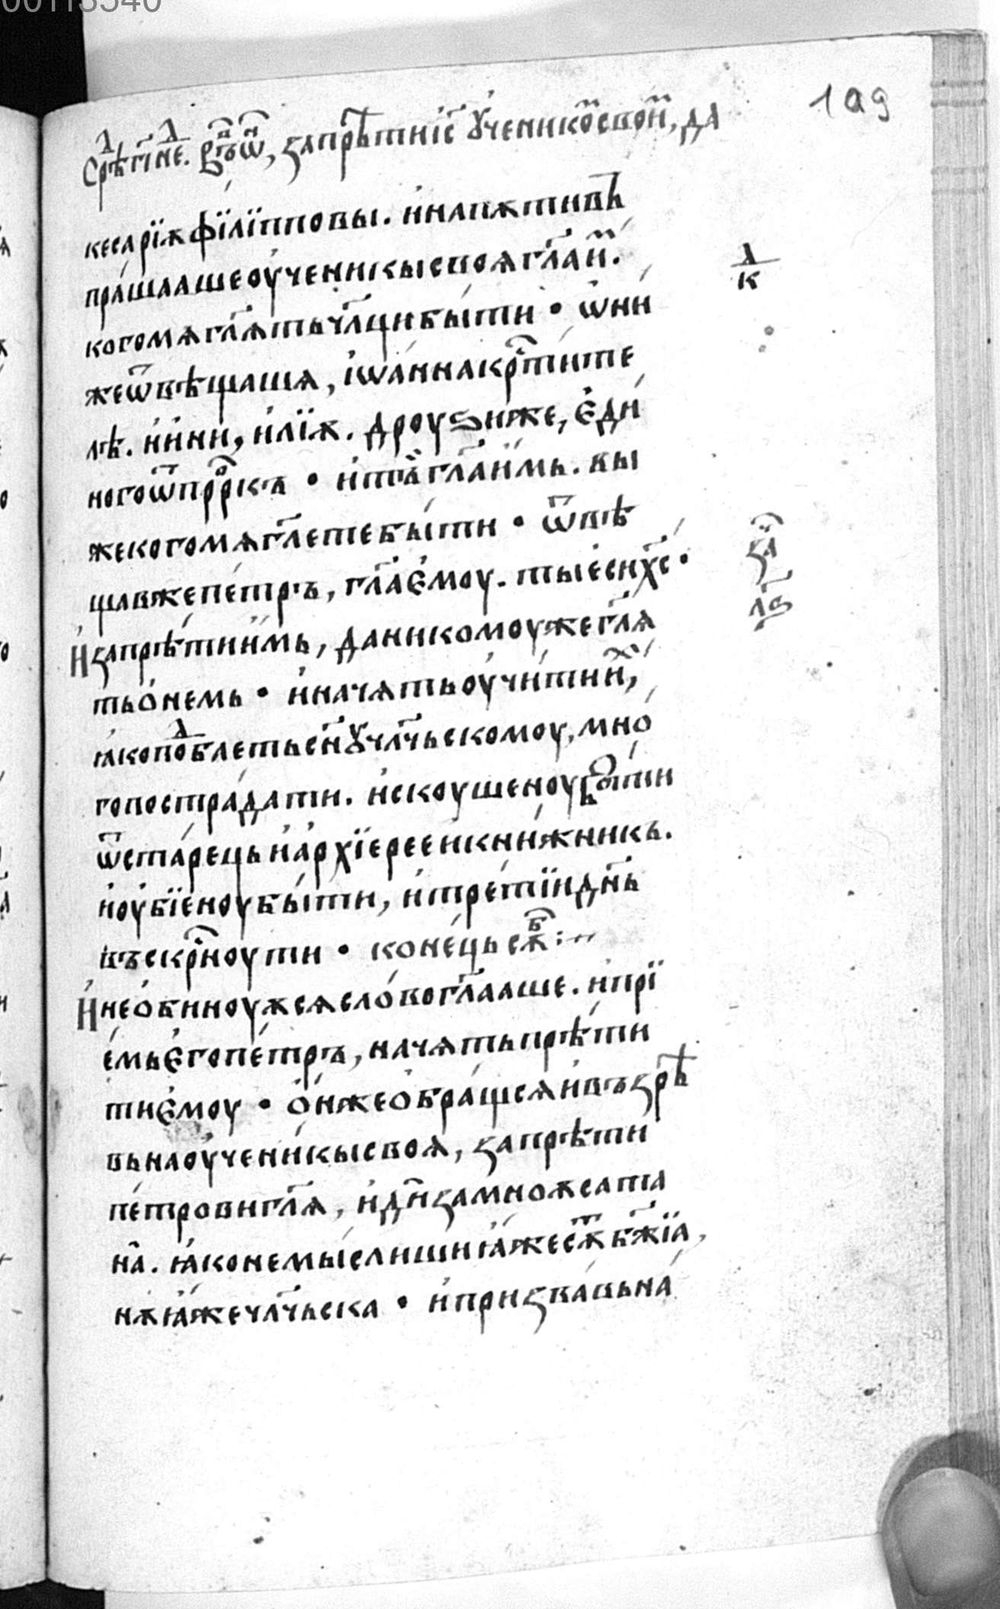 00113540
109
Срѣⷣ г҃і нⷣе. въ ѡ҆́нⷪ, запрѣтиⷮ і҆с҃ ᲂу҆ченикѡⷨ свои̑ⷨ, да
кесарїѫ фїлїпповы. и҆ на пѫти въⸯ
прашааше оу҆ченикы своѧ гл҃ѧ и҆ⷨ.
кого мѧ гл҃ѧть чл҃ци бы́ти · ѡ҆ни
же ѿвѣщашѧ, і҆ѡа́нна крⷭ҇тите
лѣ. и҆ и҆ни, и҆лїѫ. дроуѕи же, є҆ди
ного ѿ прⷪ҇ркъ · и҆ тъ гл҃а и҆мь. вы
же кого мѧ гл҃ете бы́ти · ѿвѣ
щав же пе́тръ, гл҃а є҆моу. ты є҆си х҃с ·
И҆ запрѣти и҆мь, да никомоу же гл҃ѧ
ть ѻ҆ немь · и҆ начѧть оу҆чи́ти и҆ⷯ,
ꙗ҆ко поⷣблеть сн҃ꙋ чл҃чьскомоу, мно́
го пострада́ти. и҆скоушеноу бы́ти
ѿ ста́рець и҆ а҆рхїерее и҆ книжникь.
и҆ оу҆бїе́ноу бы́ти, и҆ тре́тїи дн҃ь
въскрⷭ҇ноути · коне́ць сѫⷠ҇ :~
И҆ не ѻ҆бинѹѫсѧ сло́во гл҃ааше. и҆ прї
е́мь є҆го пе́тръ, начѧть прѣти
ти є҆моу · ѻ҆́н же ѻ҆бра́щсѧ и҆ възрѣⸯ
вь на оу҆чени́кы своѧ, запрѣти
пе́трови гл҃ѧ, и҆ди за мноѫ сата
на̀. ꙗ҆ко не мыслиши ꙗ҆же сѫⷮ бж҃їа,
нѫ ꙗ҆́же чл҃чьска · и҆ призва́вь на
л҃
к
за҃
л҃ѕ